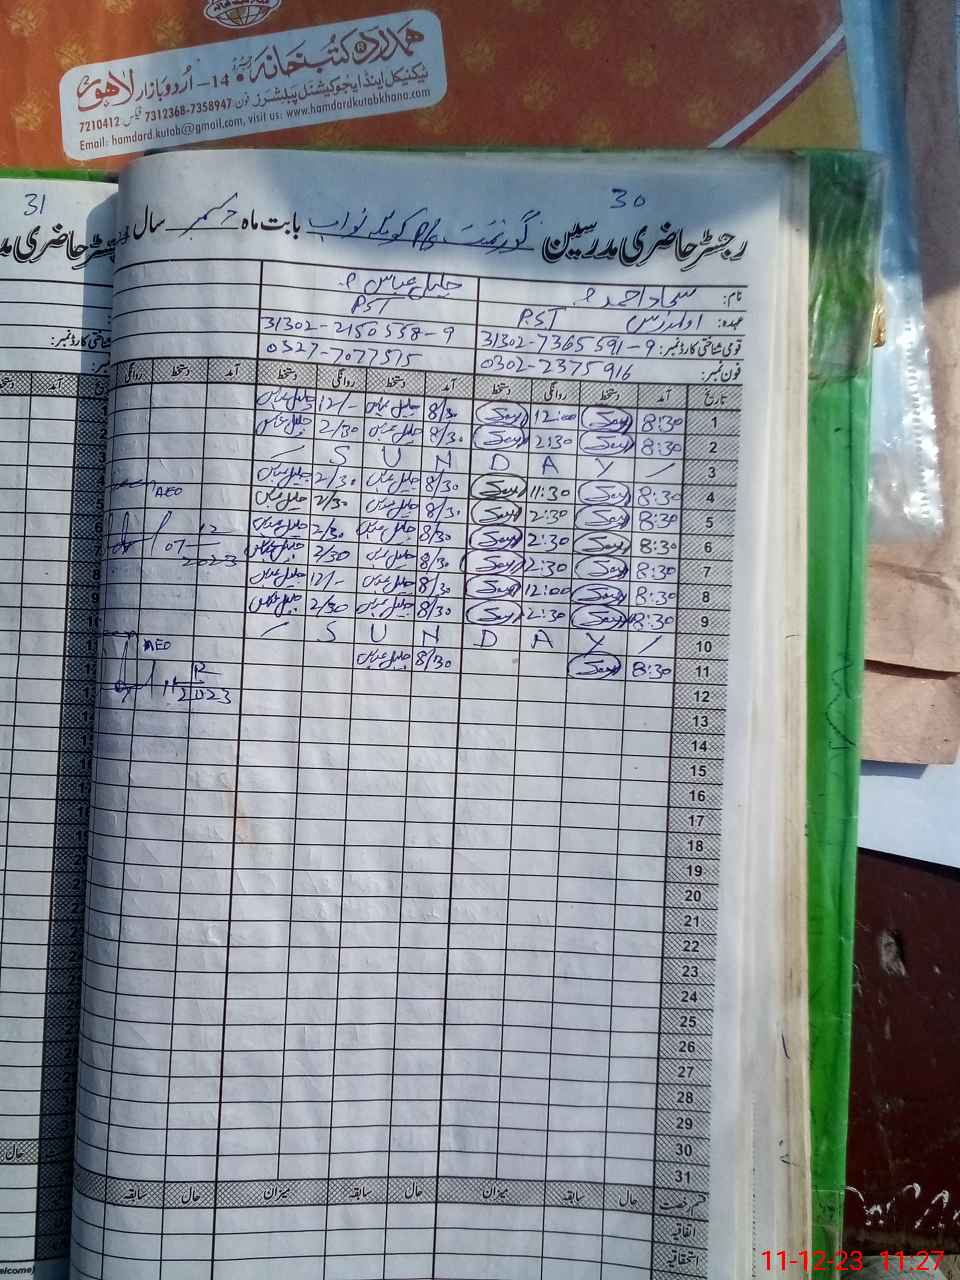 ہمدرد کتب خانہ
14- اُردو بازار لاہور
ٹیکنیکل اینڈ ایجوکیشنل پبلشرز فون 7358947-7312368 فیکس 7210412
Email: hamdard.kutab@gmail.com, visit us: www.hamdardkutabkhana.com
31
30
رجسٹر حاضری مدرسین گورنمنٹ P/S کوٹلہ نواب بابت ماہ دسمبر سال
نام: سجاد احمد جلیل عباس
عہدہ: PST PST
قومی شناختی کارڈ نمبر: 31302-7365591-9 31302-2150558-9
فون نمبر: 0302-2375916 0327-7077515
تاریخ آمد دستخط روانگی دستخط آمد دستخط روانگی دستخط آمد دستخط روانگی
1 8:30 12:00 8/30 جلیل عباس 12/- جلیل عباس
2 8:30 2:30 8/30 جلیل عباس 2/30 جلیل عباس
3 S U N D A Y
4 8:30 11:30 8/30 جلیل عباس 2/30 جلیل عباس
AEO
5 8:30 2:30 8/30 جلیل عباس 2/30 جلیل عباس
6 8:30 2:30 8/30 جلیل عباس 2/30 جلیل عباس
07 12 2023
7 8:30 2:30 8/30 جلیل عباس 2/30 جلیل عباس
8 8:30 12:00 8/30 جلیل عباس 12/- جلیل عباس
9 8:30 2:30 8/30 جلیل عباس 2/30 جلیل عباس
10 S U N D A Y
AEO
11 8:30 8/30 جلیل عباس
11 12 2023
12
13
14
15
16
17
18
19
20
21
22
23
24
25
26
27
28
29
30
31
قسم رخصت حال سابقہ میزان حال سابقہ میزان حال سابقہ
اتفاقیہ
استحقاقیہ
11-12-23 11:27